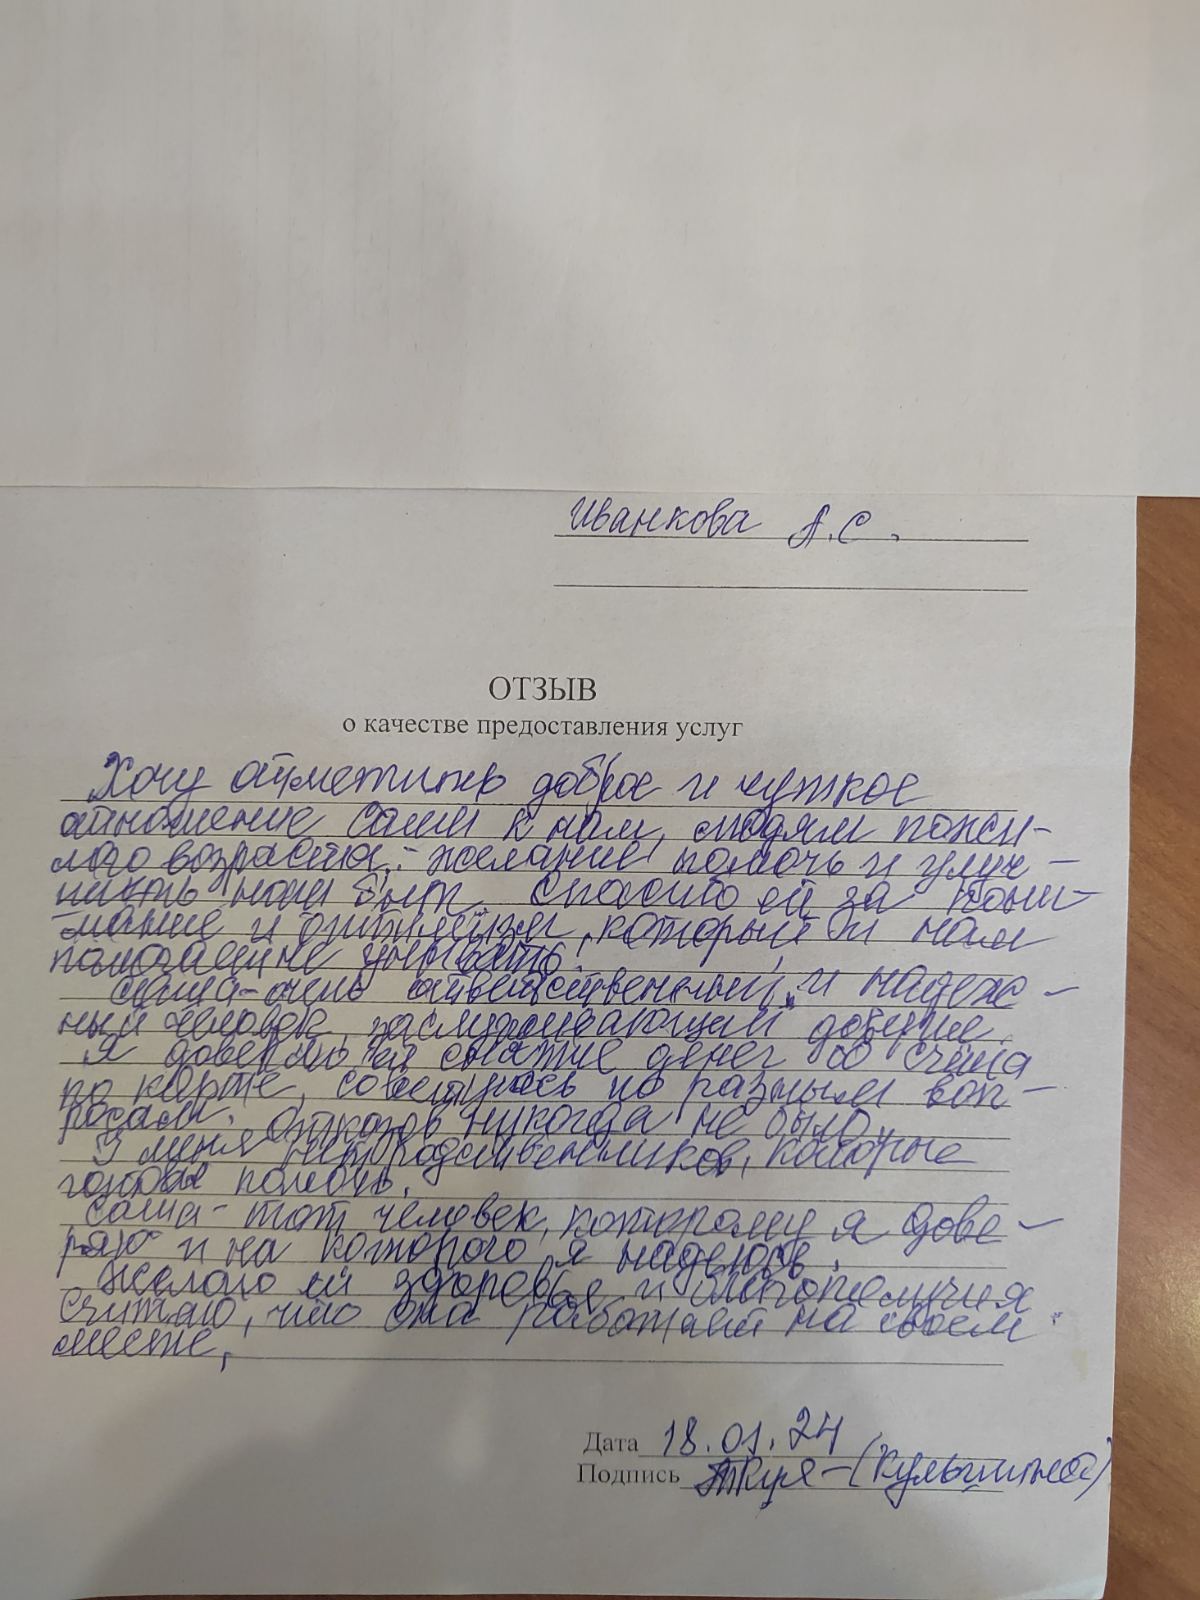 Иванкова А.С.
ОТЗЫВ
о качестве предоставления услуг
Хочу отметить доброе и чуткое
отношение Саши к нам, людям пожи-
лого возраста, желание помочь и улуч-
шить наш быт. Спасибо ей за пони-
мание и оптимизм, который и нам
помогает не унывать.
Саша - очень ответственный и надеж-
ный человек, заслуживающий доверие.
Я доверяю ей снятие денег со счёта
по карте, советуюсь по разным воп-
росам. Отказов никогда не было.
У меня нет родственников, которые
готовы помочь.
Саша - тот человек, которому я дове-
ряю и на которого я надеюсь.
Желаю ей здоровья и благополучия
Считаю, что она работает на своем
месте.
Дата 18.01.24
Подпись (Кульшина)